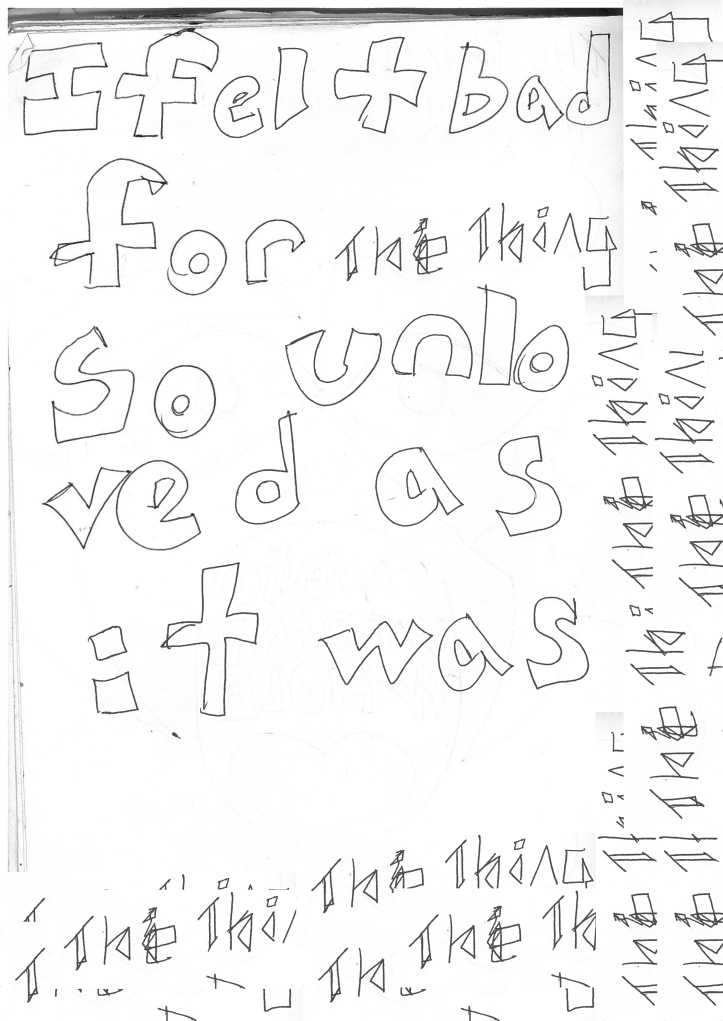 I felt bad
for The Thing
so unlo
ved as
it was
The Thing
The Thi
The Th
Th
The Thing
The Thing
The Thing
The Thin
The Thi
The